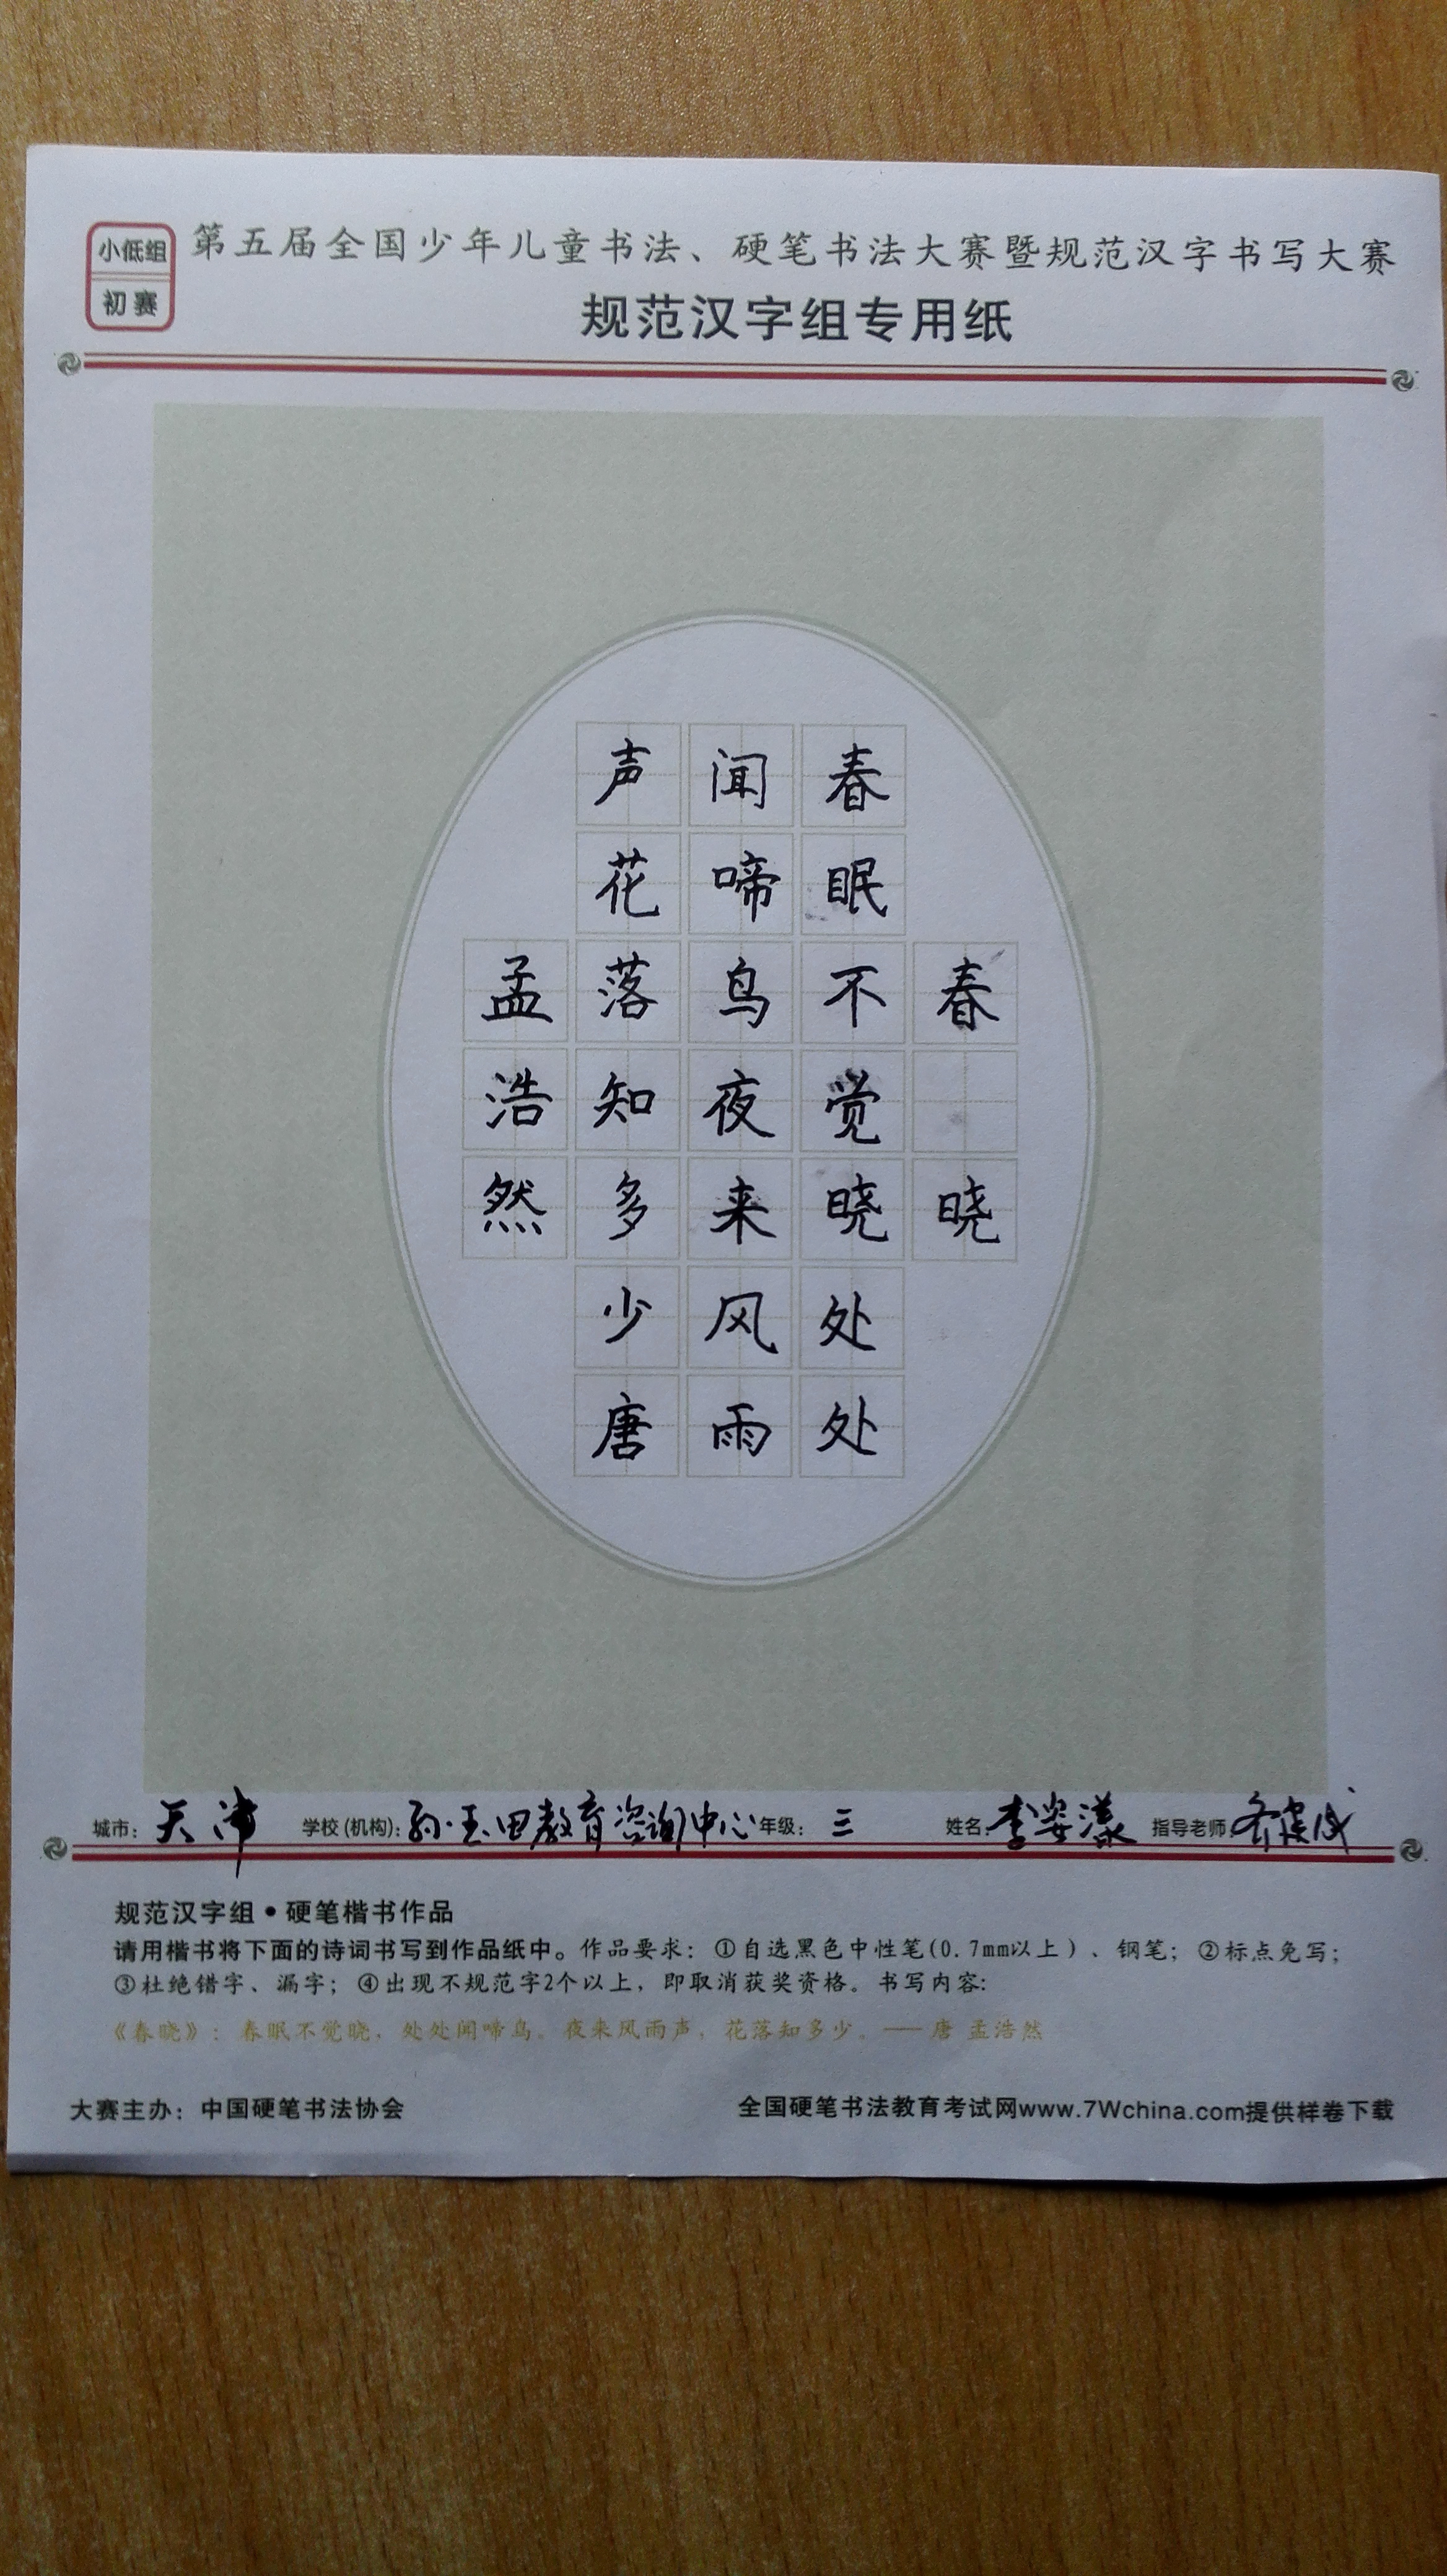 小低组
初赛
第五届全国少年儿童书法、硬笔书法大赛暨规范汉字书写大赛
规范汉字组专用纸
春晓
春眠不觉晓处处
闻啼鸟夜来风雨
声花落知多少唐
孟浩然
城市：天津 学校(机构)：孙玉田教育咨询中心 年级：三 姓名：李安漾 指导老师
规范汉字组•硬笔楷书作品
请用楷书将下面的诗词书写到作品纸中。作品要求：①自选黑色中性笔(0.7mm以上)、钢笔；②标点免写；
③杜绝错字、漏字；④出现不规范字2个以上，即取消获奖资格。书写内容：
《春晓》：春眠不觉晓，处处闻啼鸟。夜来风雨声，花落知多少。——唐 孟浩然
大赛主办：中国硬笔书法协会
全国硬笔书法教育考试网www.7Wchina.com提供样卷下载